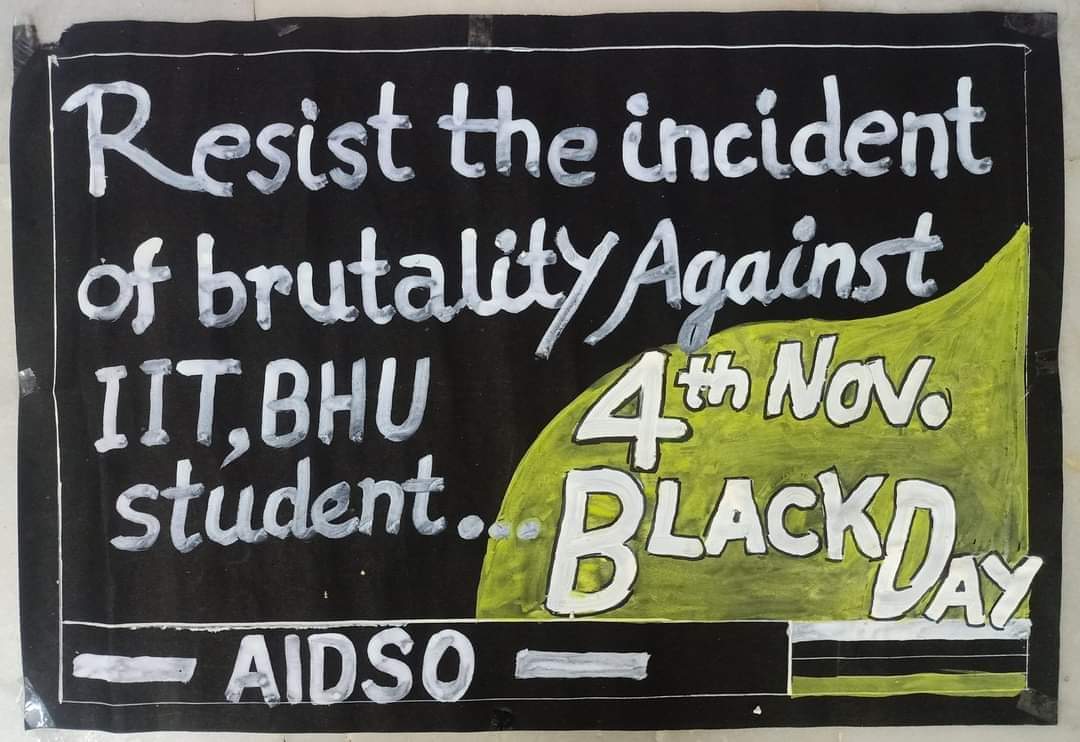 Resist the incident
of brutality Against
IIT,BHU
student...
4th Nov.
BLACK DAY
AIDSO